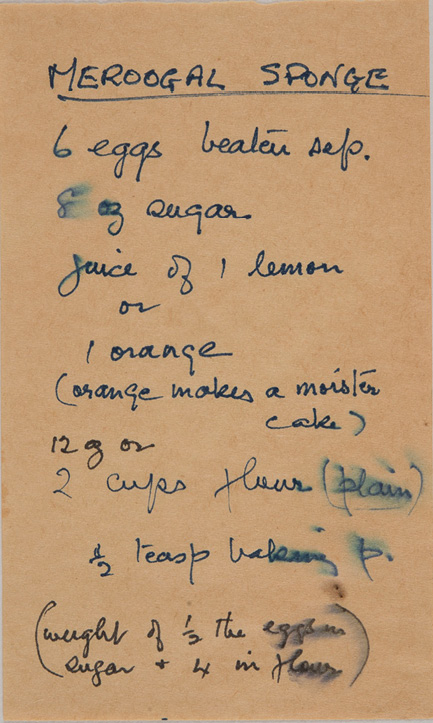 MEROOGAL SPONGE
6 eggs beaten sep.
8 oz sugar
juice of 1 lemon
or
1 orange
(orange makes a moister
cake)
12 oz or
2 cups flour (plain)
1/2 teasp baking p.
(weight of 1/2 the eggs in
sugar + 4 in flour)